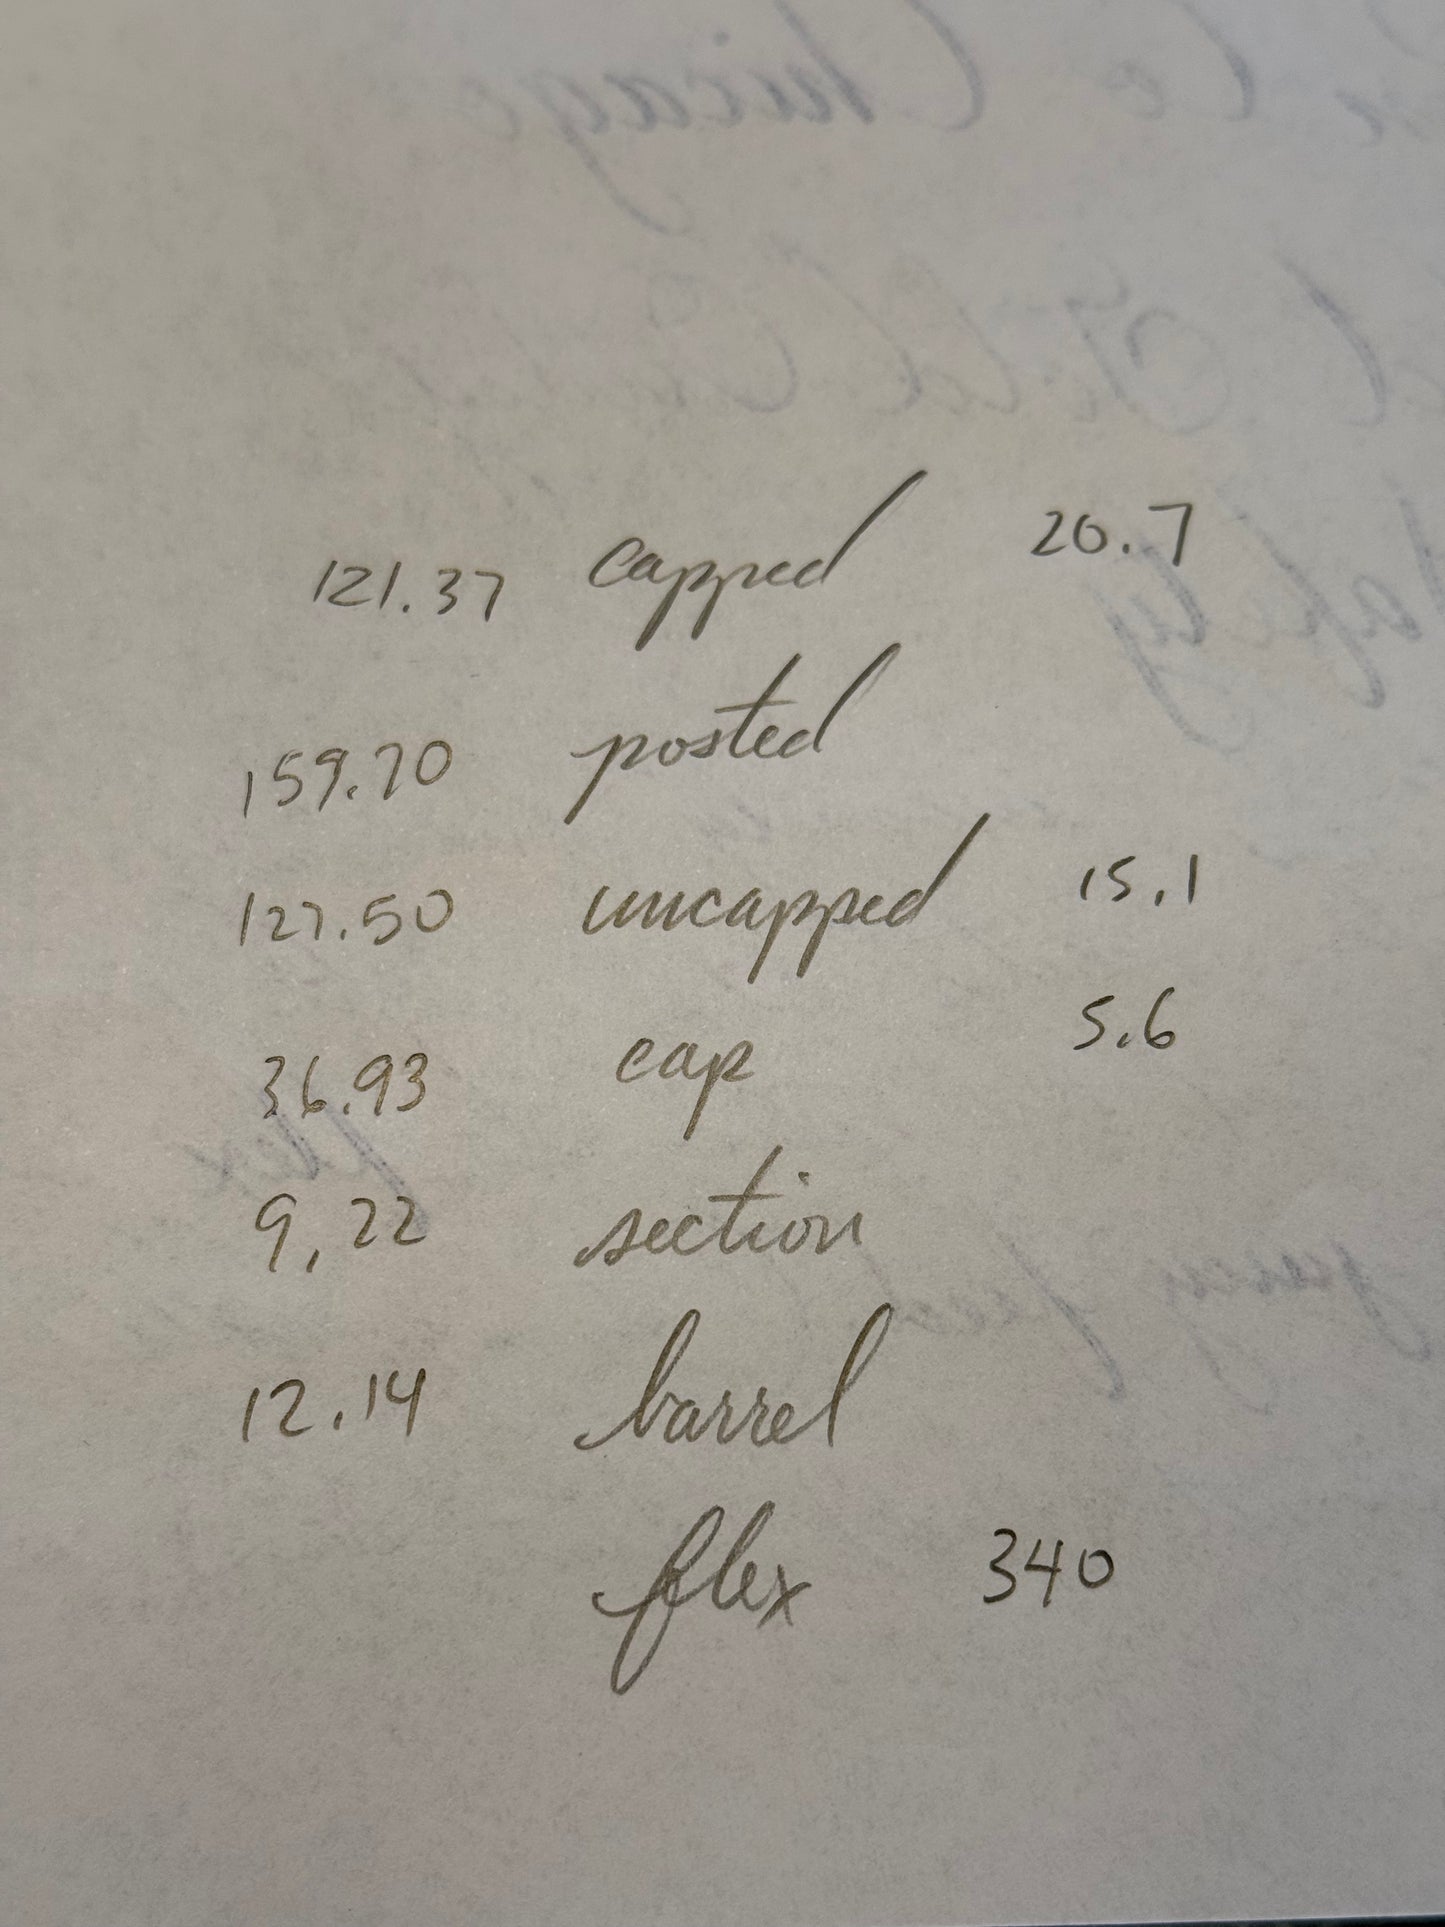 Chicago
121.37 capped 20.7
159.70 posted
127.50 uncapped 15.1
36.93 cap 5.6
flex
9.22 section
12.14 barrel
flex 340